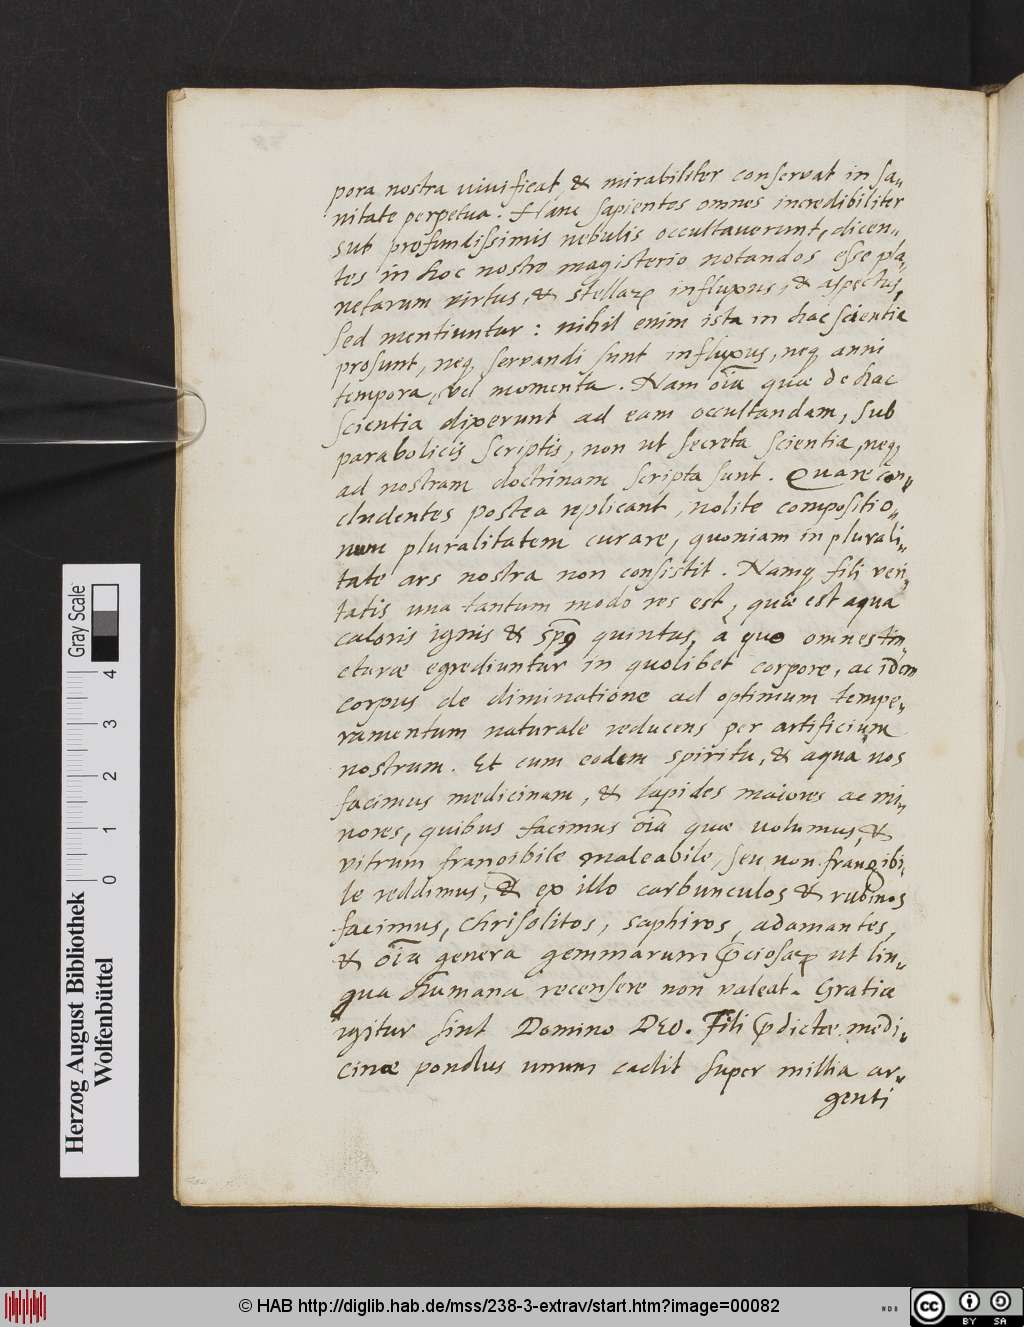 pora nostra vivificat, & mirabiliter conservat in sa„
nitate perpetua. Hanc sapientes omnes incredibiliter
sub profundissimis nebulis occultaverunt, dicen„
tes in hoc nostro magisterio notandos esse pla„
netarum virtus, & stellaꝝ influxus, & aspectus,
sed mentiuntur: nihil enim ista in hac scientia
prosunt, neq, servandi sunt influxus, neq, anni
tempora, vel momenta. Nam oı̄a quæ de hac
scientia dixerunt ad eam occultandam, sub
parabolicis scriptis, non ut secreta scientia, neq,
ad nostram doctrinam scripta sunt. Quare con„
cludentes postea replicant, nolite compositio„
num pluralitatem curare, quoniam in plurali„
tate ars nostra non consistit. Namq, fili veri„
tatis una tantum modo res est, quæ est aqua
caloris ignis & sp̄s quintus, à quo omnes tin„
cturæ egrediuntur in quolibet corpore, ac idem
corpus de diminatione ad optimum tempe„
ramentum naturale reducens per artificium
nostrum. Et cum eodem spiritu, & aqua nos
facimus medicinam, & lapides maiores ac mi„
nores, quibus facimus oı̄a quæ volumus, &
vitrum frangibile maleabile, seu non frangibi„
le reddimus, & ex illo carbunculos & rubinos
facimus, Chrisolitos, saphiros, adamantes,
& oı̄a genera gemmarum p̄ciosaꝝ ut lin„
gua humana recensere non valeat. Gratiæ
igitur sint Domino DEO. Fili p̄dictæ medi„
cinæ pondus unum cadit super millia ar„
genti
Herzog August Bibliothek
Wolfenbüttel
0 1 2 3 4
Gray Scale
© HAB http://diglib.hab.de/mss/238-3-extrav/start.htm?image=00082
cc BY SA